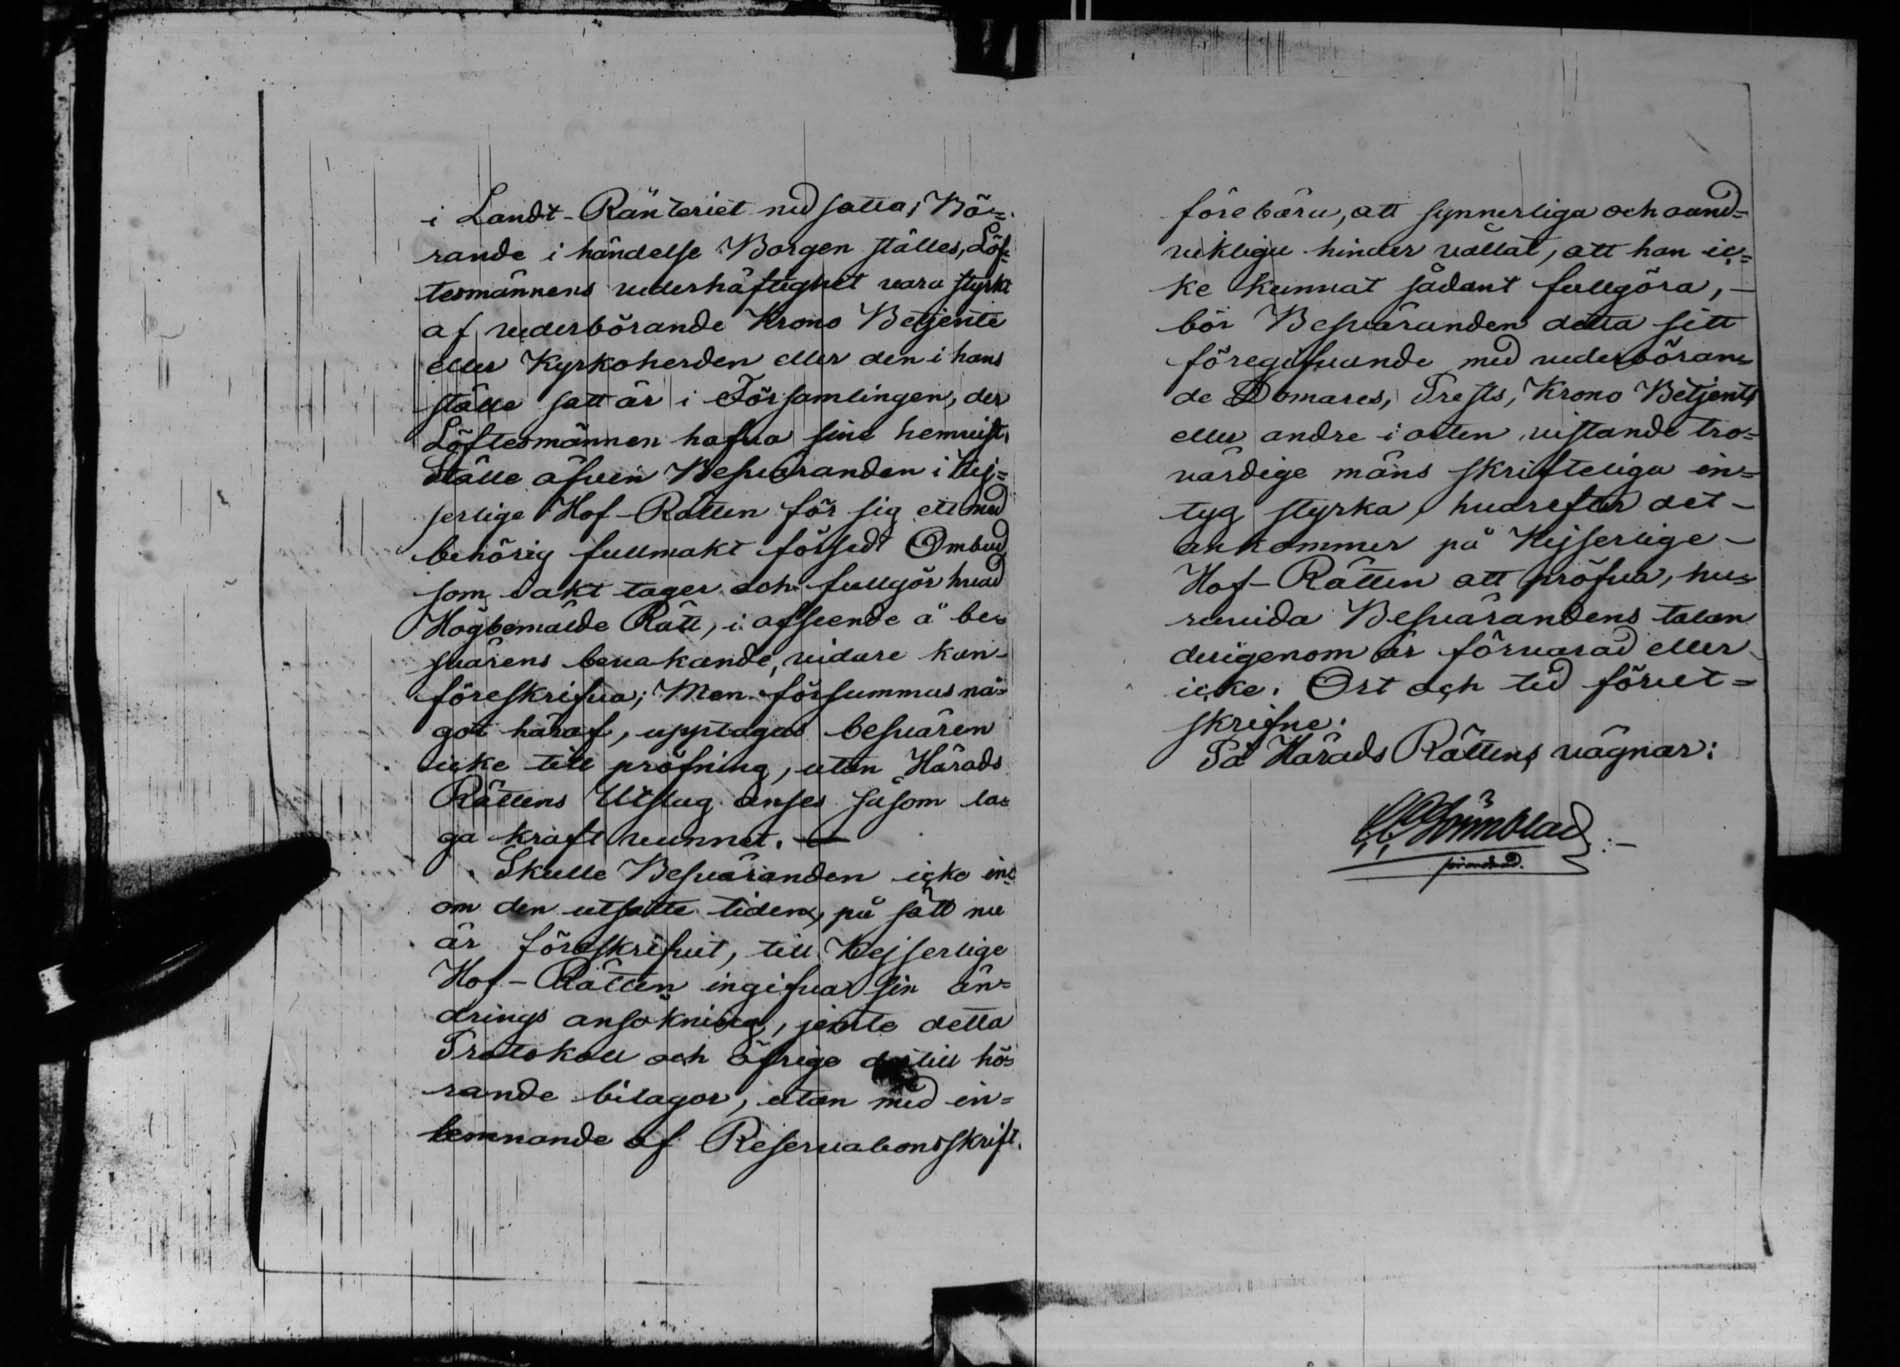 i Landt-Ränteriet nedsatta; Bö=
rande i händelse Borgen ställes, Löf=
tesmännens vederhäftighet vara styrkt
af vederbörande Krono Betjente
eller Kyrkoherden eller den i hans
ställe satt är i Församlingen, der
Löftesmännen hafva sine hemvist,
Ställe äfven Besväranden i Kej=
serlige Hof-Rätten för sig ett med
behörig fullmakt försedt Ombud
som i akt tager och fullgör hvad
Högbemälde Rätt, i afseende å be=
svärens bevakande, vidare kan
föreskrifva; Men försummas nå=
got häraf, upptagas besvären
icke till pröfning, utan Härads
Rättens Utslag anses såsom la=
ga kraft vunnet. —
Skulle Besväranden icke in=
om den utsatte tiden, på sätt nu
är föreskrifvit, till Kejserlige
Hof-Rätten ingifva sin än=
drings ansökning, jemte detta
Protokoll och öfrige dertill hö=
rande bilagor, utan med in=
lemnande af Reservationsskrift
förebära, att synnerliga och ound=
vikliga hinder vållat, att han ic=
ke kunnat sådant fullgöra, -
bör Besväranden detta sitt
föregifvande med vederböran=
de Domares, Prests, Krono Betjents
eller andre i orten vistande tro=
värdige mäns skrifteliga in=
tyg styrka, hvarefter det -
ankommer på Kejserlige -
Hof-Rätten att pröfva, hu=
ruvida Besvärandens talan
derigenom är förvarad eller
icke. Ort och tid förut=
skrifne.
På Härads Rättens vägnar: